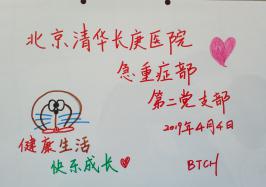 北京清华长庚医院
急重症部
第二党支部
2019年4月4日
健康生活
快乐成长
BTCH